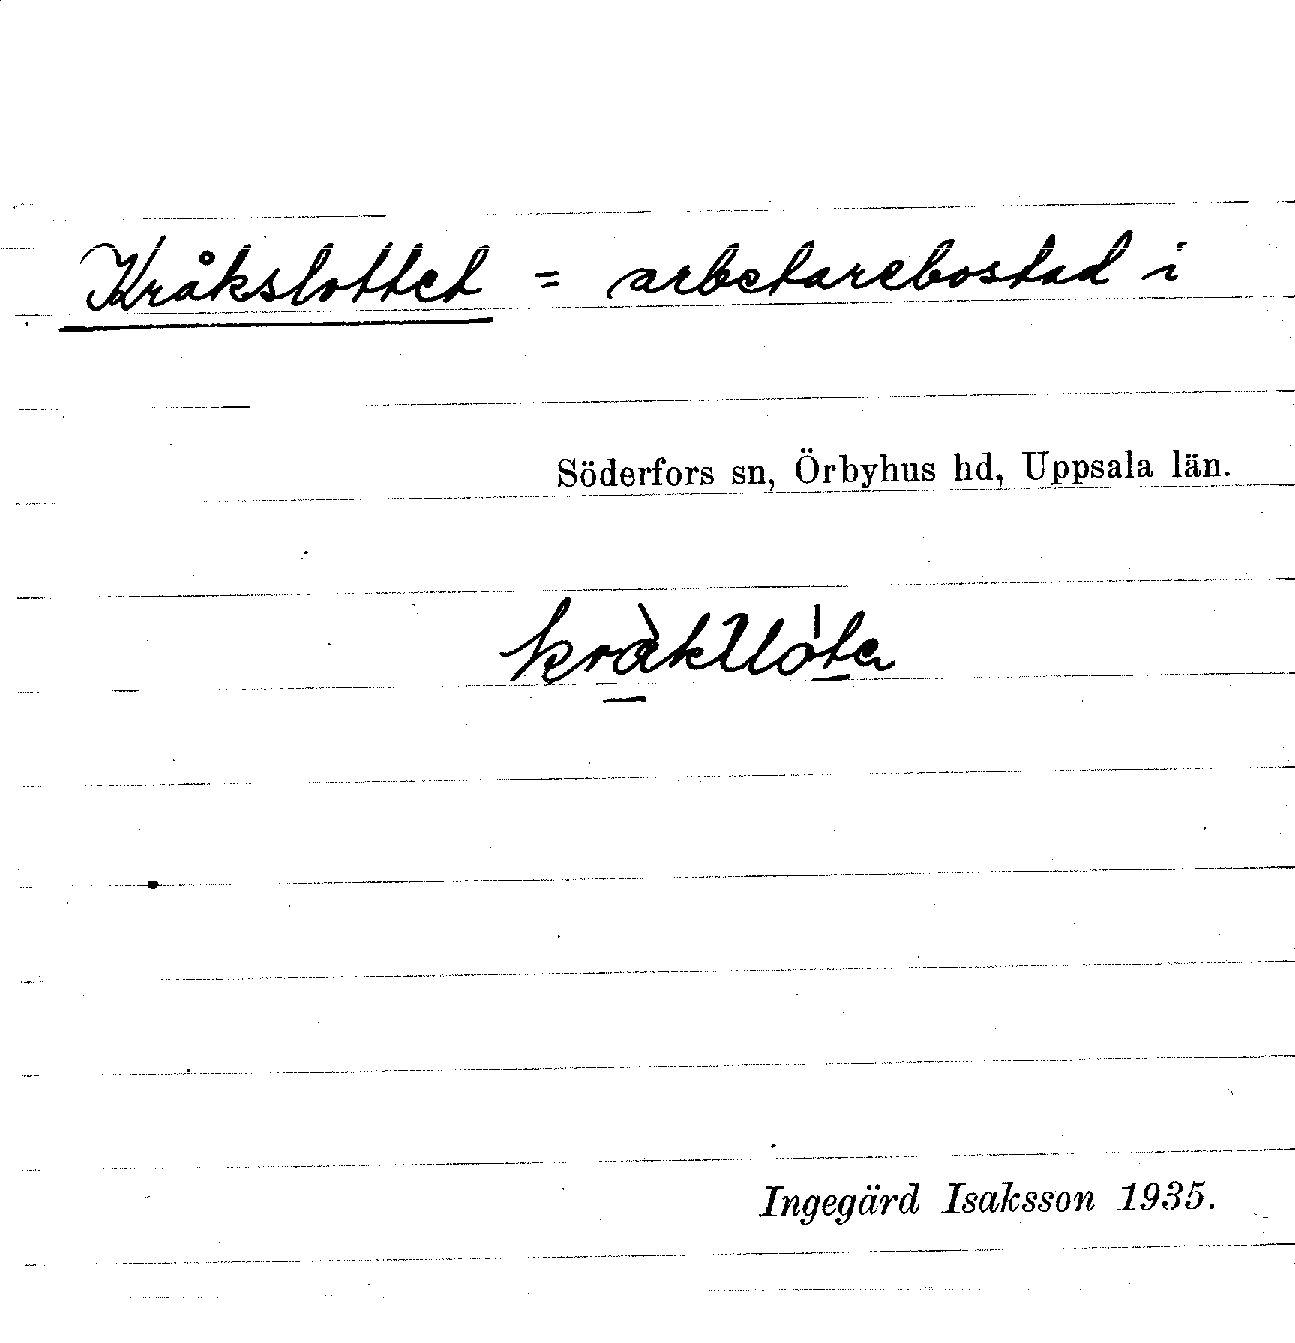 Kråkslottet = arbetarebostad i
Söderfors sn, Örbyhus hd, Uppsala län.
Ingegärd Isaksson 1935.